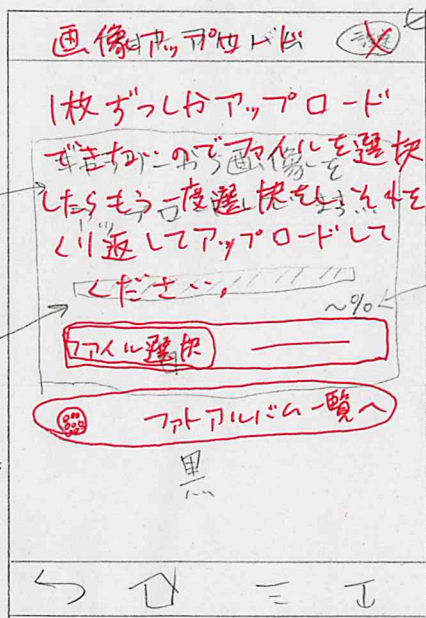 画像アップロード
1枚ずつしかアップロード
できないのでファイルを選択
したらもう一度選択をし、それを
くり返してアップロードして
ください。
~%
ファイル選択
フォトアルバム一覧へ
黒